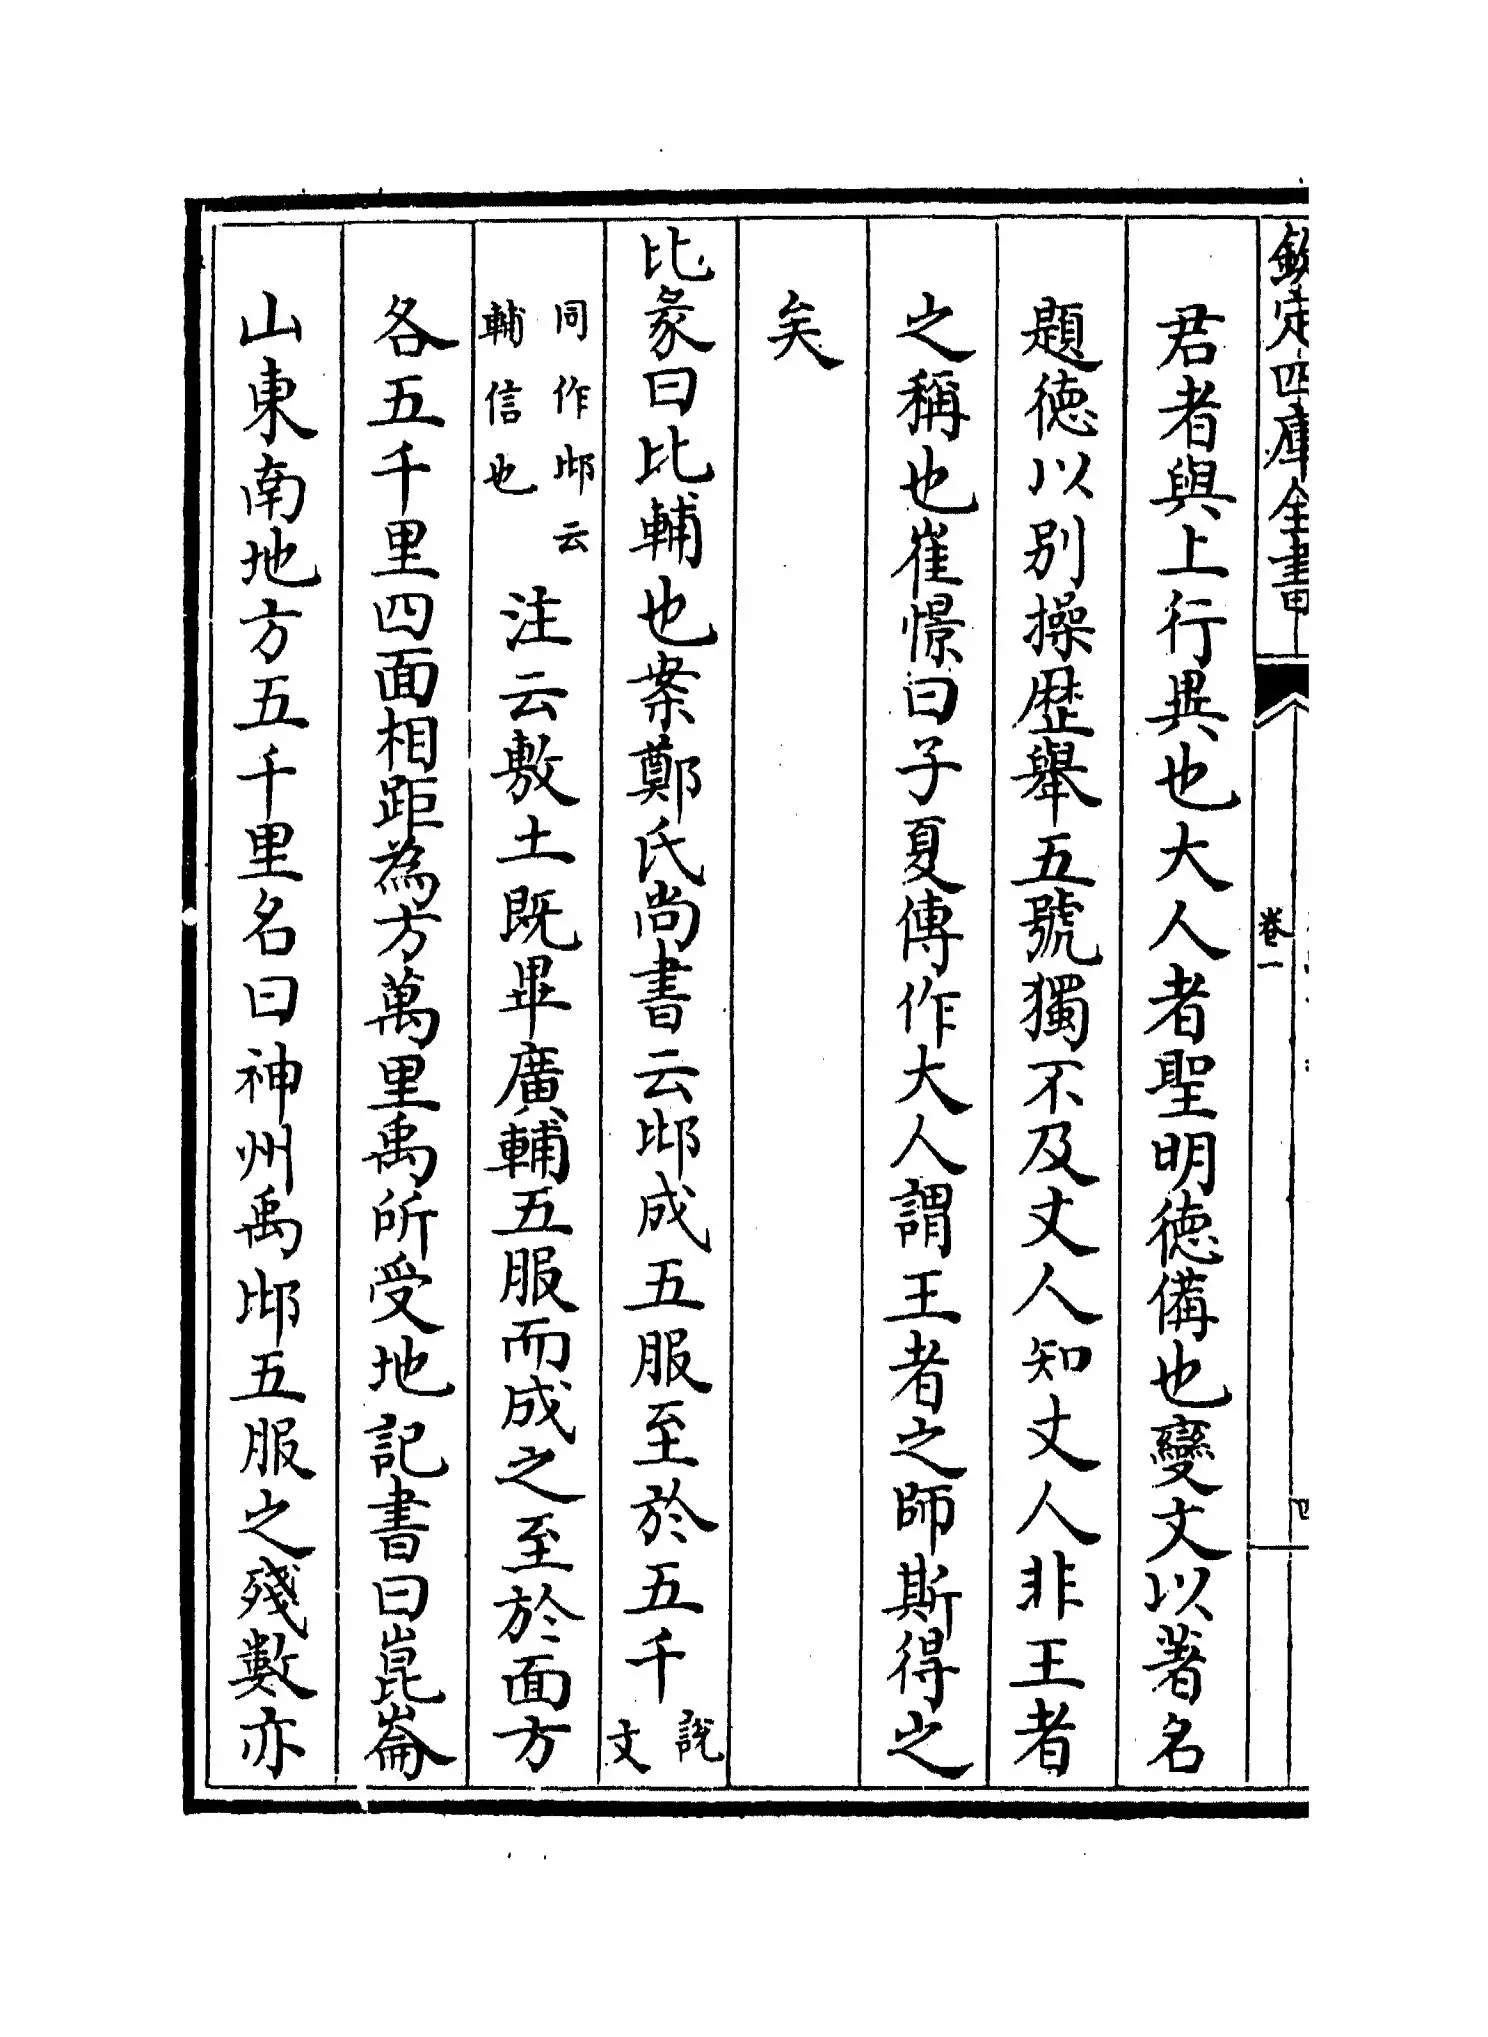 欽定四庫全書
卷一
四
君者與上行異也大人者聖明德備也變文以著名
題德以別操歴舉五號獨不及丈人知丈人非王者
之稱也崔憬曰子夏傳作大人謂王者之師斯得之
矣
比彖曰比輔也案鄭氏尚書云邶成五服至於五千説文
同作邶云輔信也注云敷土既畢廣輔五服而成之至於面方
各五千里四面相距為方萬里禹所受地記書曰崑崙
山東南地方五千里名曰神州禹邶五服之殘數亦